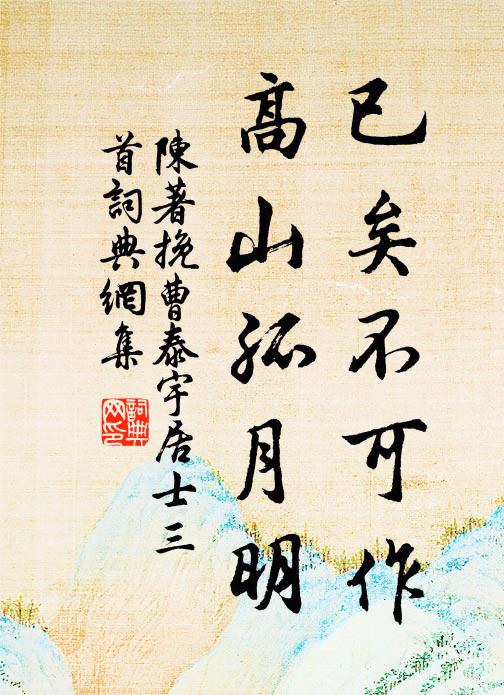 已矣不可作
高山孤月明
陳著挽曹泰宇居士三
首詞典網集
詞典
网印